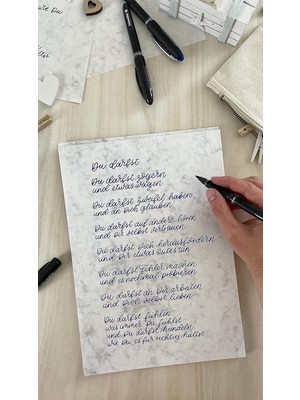 Du darfst
Du darfst zögern
und etwas wagen
Du darfst Zweifel haben
und an dich glauben
Du darfst auf andere hören
und Dir selbst vertrauen
Du darfst Dich herausfordern
und Dir etwas Gutes tun
Du darfst Fehler machen
und es nochmal probieren
Du darfst an Dir arbeiten
und Dich selbst lieben
Du darfst fühlen
was immer Du fühlst
und Du darfst handeln
wie Du es für richtig hältst.